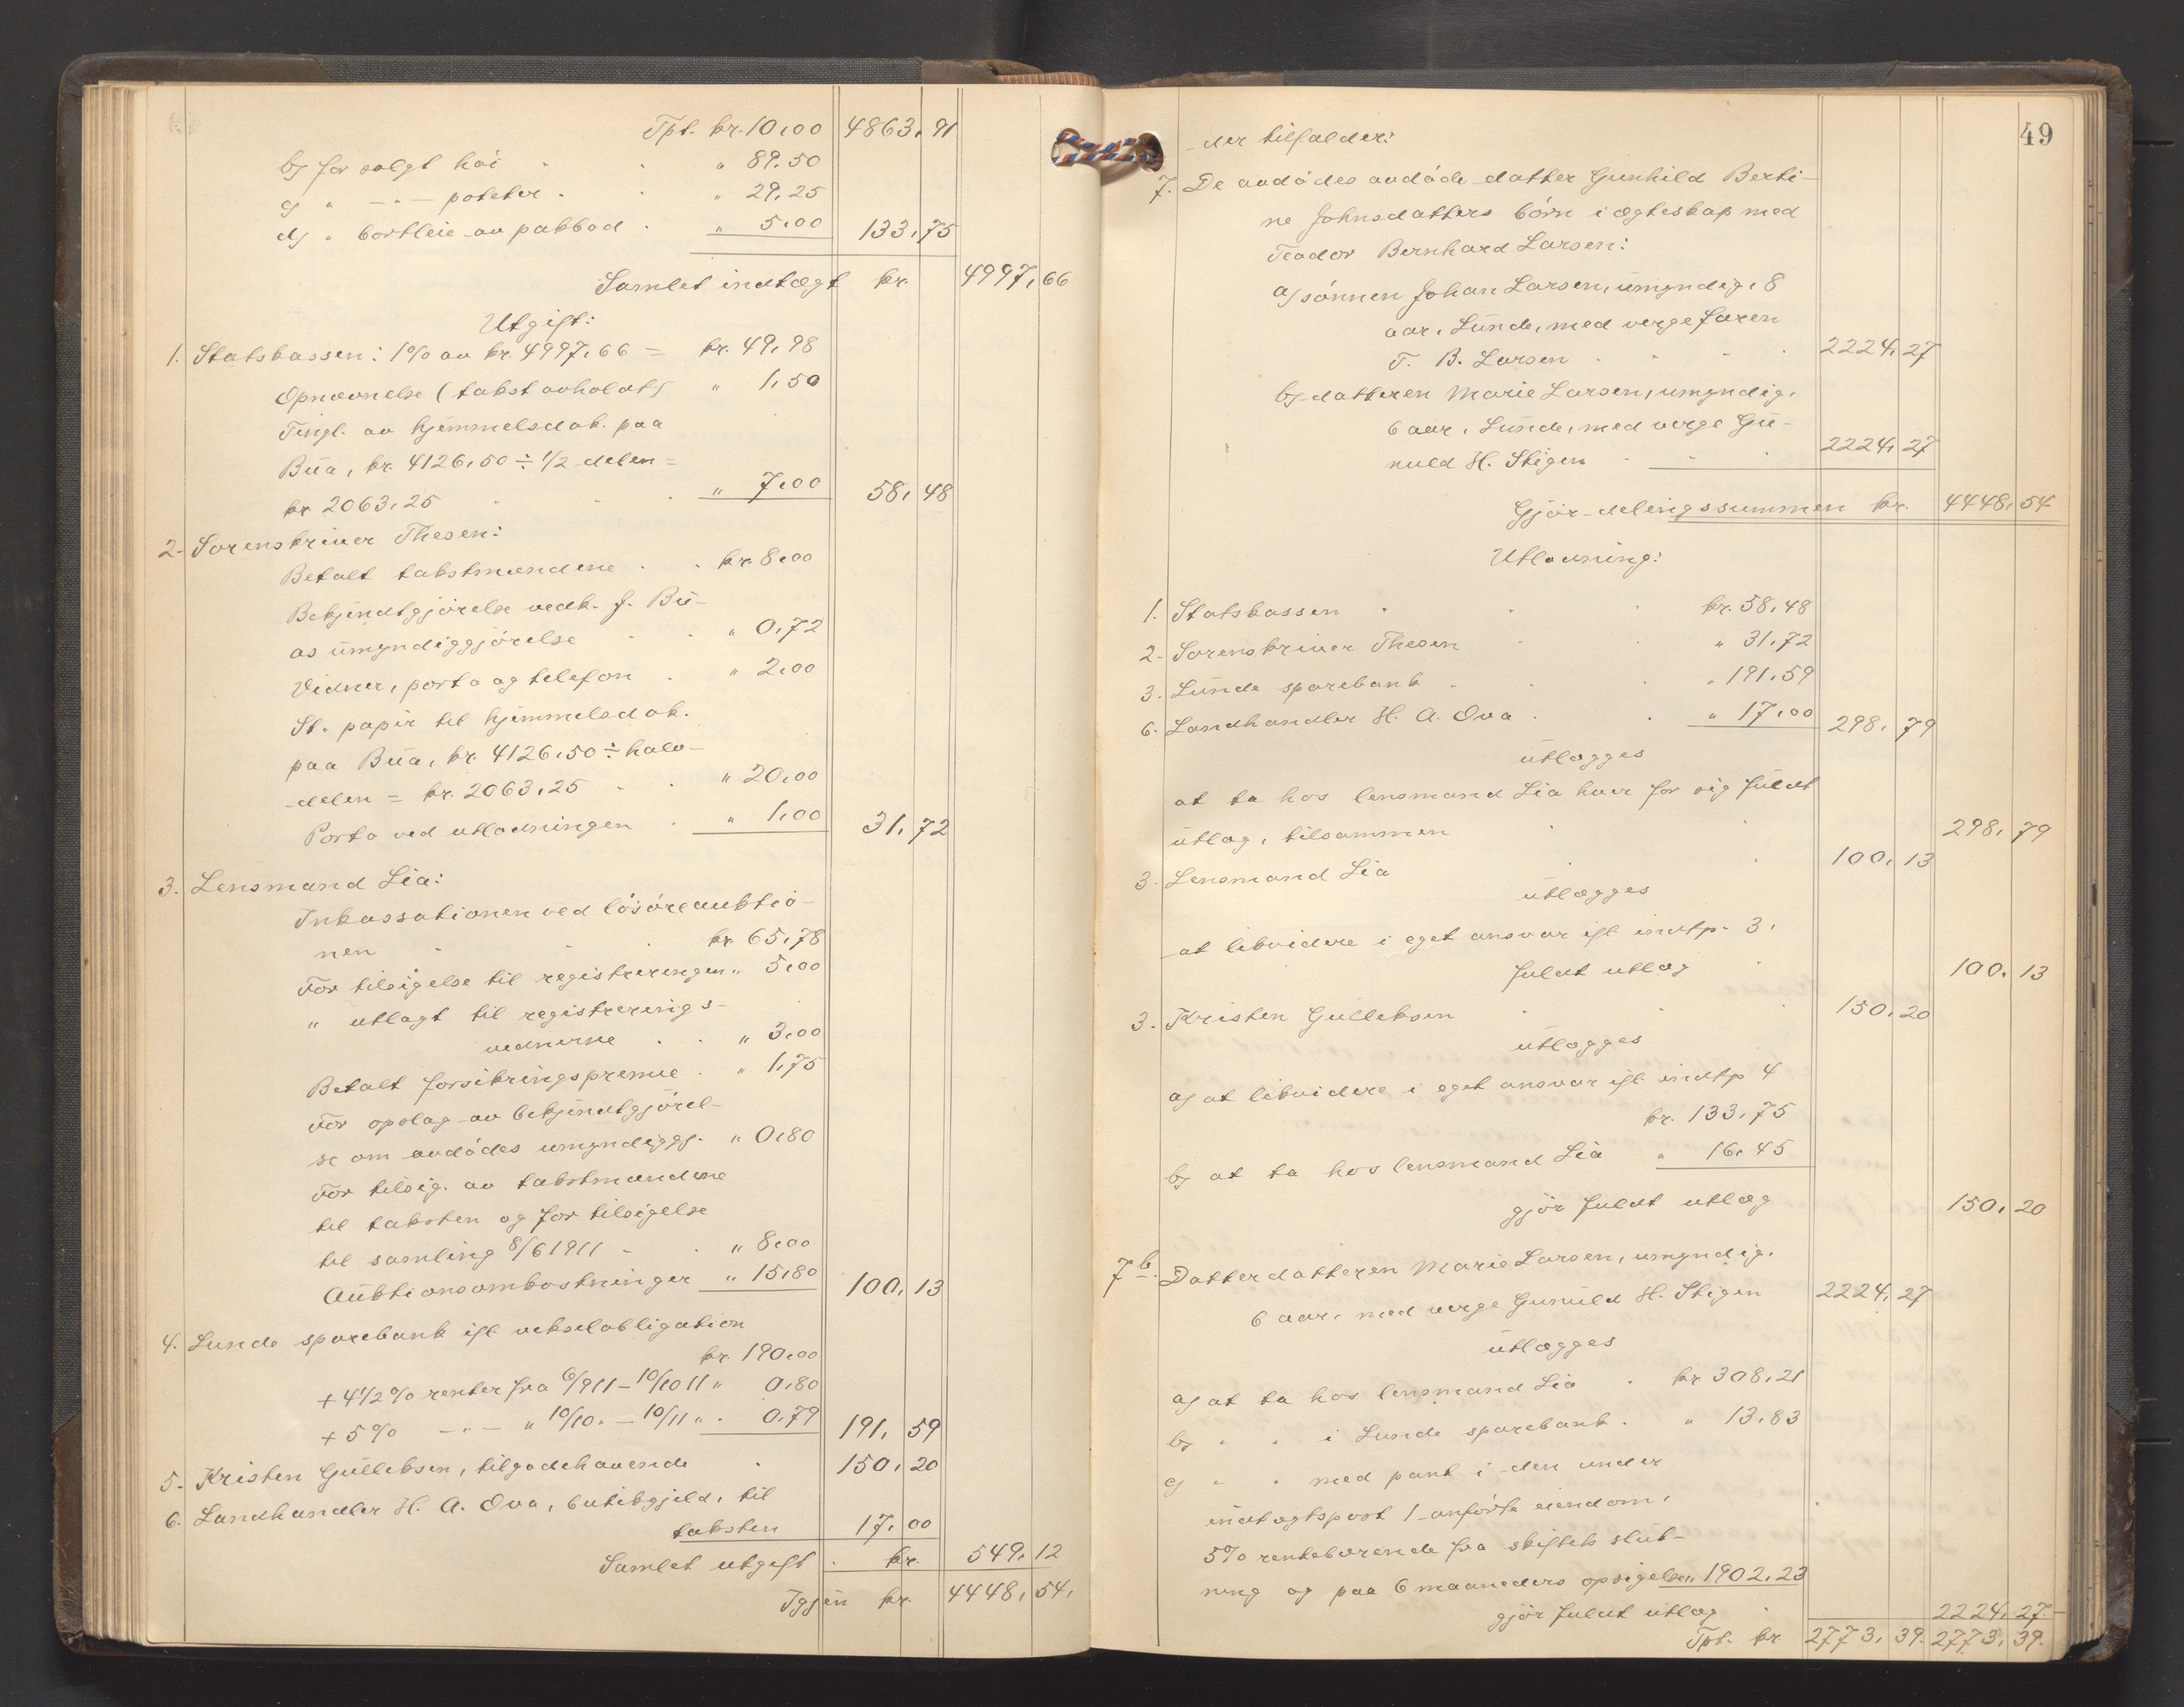 Tpt. kr. 10,00 4863,91
b) for solgt høi „ 89.50
c) „ —„— poteter „ 29,25
d) „ bortleie av pakbod „ 5,00 133,75
Samlet indtægt kr. 4997,66
Utgift:
1. Statskassen: 1% av kr. 4997,66 = kr. 49,98
Opnævnelse (takst avholdt) „ 1,50
Tingl. av hjemmelsdok. paa
Bua, kr. 4126,50 ÷ 1/2 delen =
kr 2063,25 „ 7,00 58,48
2. Sorenskriver Thesen:
Betalt takstmændene kr. 8,00
Bekjendtgjørelse vedk. J. Bu-
as umyndiggjørelse „ 0,72
Vidner, porto og telefon „ 2,00
St. papir til hjemmelsdok.
paa Bua, kr. 4126,50 ÷ halv-
delen = kr. 2063,25 „ 20,00
Porto ved utlodningen „ 1,00 31,72
3. Lensmand Lia:
Inkassationen ved løsøreauktio-
nen kr. 65,78
For tilsigelse til registreringen „ 5,00
„ utlagt til registrerings-
vidnerne „ 3,00
Betalt forsikringspremie „ 1,75
For opslag av bekjendtgjørel-
se om avdødes umyndiggj. „ 0,80
For tilsig. av takstmændene
til taksten og for tilsigelse
til samling 8/6 1911 „ 8,00
Auktionsomkostninger „ 15,80 100,13
4. Lunde sparebank ifl. vekselobligation
kr. 190,00
+ 4 1/2 % renter fra 6/9 11 – 10/10 11 „ 0,80
+ 5 % —„— „ 10/10. – 10/11 „ 0,79 191,59
5. Kristen Gulleksen, tilgodehavende 150,20
6. Landhandler H. A. Ova, butikgjeld, til
taksten 17,00
Samlet utgift kr. 549,12
Igjen kr. 4448,54,
49
der tilfalder:
7. De avdødes avdøde datter Gunhild Berti-
ne Johnsdatters børn i ægteskap med
Teodor Bernhard Larsen:
a) sønnen Johan Larsen, umyndig, 8
aar, Lunde, med verge faren
T. B. Larsen 2224,27
b) datteren Marie Larsen, umyndig,
6 aar, Lunde, med verge Gu-
nuld H. Stigen 2224,27
Gjør delingssummen kr. 4448,54
Utlodning:
1. Statskassen kr. 58,48
2. Sorenskriver Thesen „ 31,72
3. Lunde sparebank „ 191,59
6. Landhandler H. A. Ova „ 17,00 298,79
utlægges
at ta hos lensmand Lia hver for sig fuldt
utlæg, tilsammen 298,79
3. Lensmand Lia 100,13
utlægges
at likvidere i eget ansvar ifl. indtp. 3,
fuldt utlæg 100,13
3. Kristen Gulleksen 150,20
utlægges
a) at likvidere i eget ansvar ifl. indtp 4
kr. 133,75
b) at ta hos lensmand Lia „ 16,45
gjør fuldt utlæg 150,20
7 b. Datterdatteren Marie Larsen, umyndig,
6 aar, med verge Gunuld H. Stigen 2224,27
utlægges
a) at ta hos lensmand Lia kr 308,21
b) „ „ i Lunde sparebank „ 13,83
c) „ „ med pant i den under
indtægtspost 1 anførte eiendom,
5% rentebærende fra skiftets slut-
ning og paa 6 maaneders opsigelse „ 1902,23
gjør fuldt utlæg 2224,27
Tpt. kr 2773,39. 2773,39.